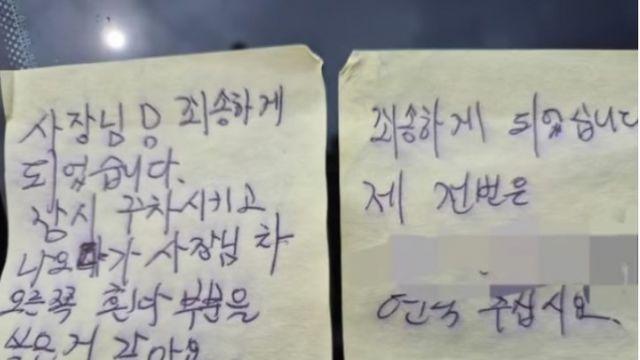 사장님 죄송하게
되었습니다.
잠시 주차시키고
나오다가 사장님 차
오른쪽 흰다 부분을
같아요
죄송하게 되었습니다
제 전번은
연락 주십시요.